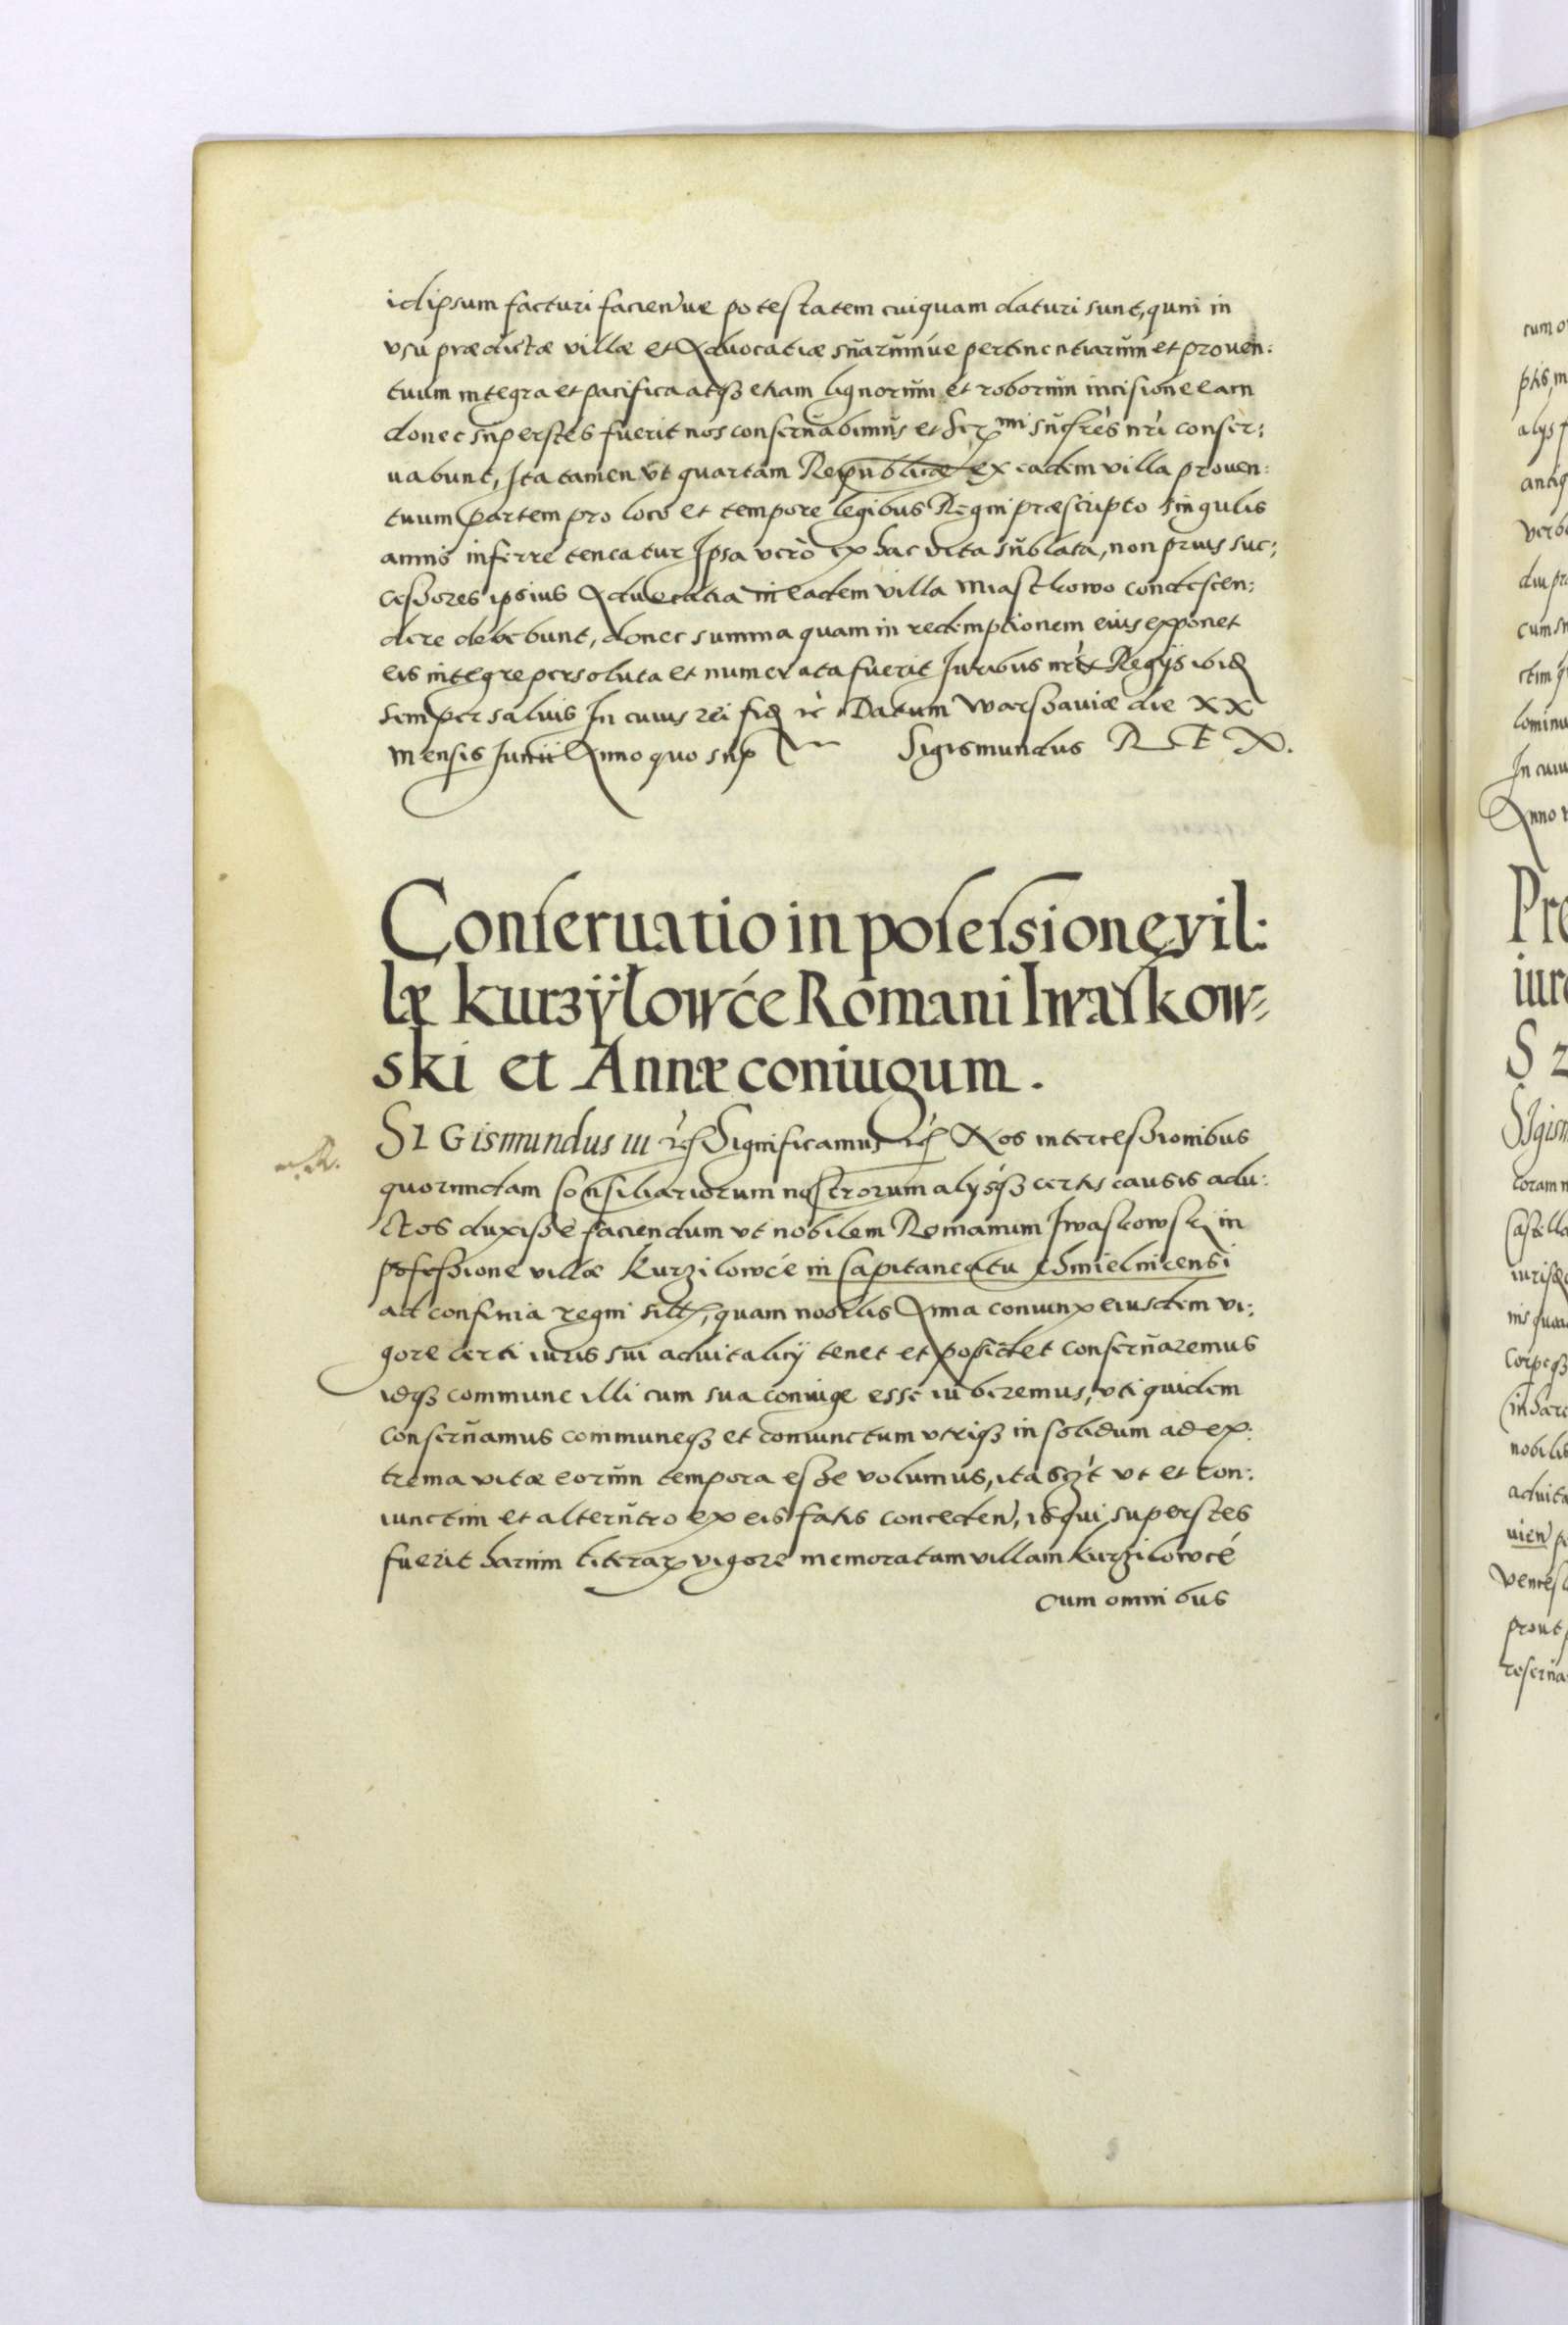 idipsum facturi facien'ue potestatem cuiquam daturi sunt, quin in
vsu prædictæ villæ et Aduocatiæ suarumue pertinentiarum et prouen:
tuum integra et pacifica atqз etiam lignorum et roborum incisione eam
donec superstes fuerit nos conseruabimus et Ser mi sucſrēs nr̄i conser:
uabunt, Ita tamen vt quartam Republicæ ex eadem villa prouen:
tuum partem pro loco et tempore legibus Regni præscripto singulis
annis inferre teneatur Ipsa verò ex hac vita sublata, non prius suc:
cessores ipsius Aduocatia in eadem villa Miastkowo condescen:
dere debebunt, donec summa quam in redemptionem eius exponet
eis integre persoluta et numerata fuerit Iuribus nr̄is Regÿs ibid
semper saluis In cuius rei fid rc̄ Datum Warssauiæ die XX
mensis Junii Anno quo sup Sigismundus REX.
Conseruatio in possessione vil:
læ Kurzÿłowće Romani Iwaſkow=
ski et Annæ coniugum.
SIGismundus III rc̄ Significamus rc̄ Nos intercessionibus
quorundam Consiliariorum nostrorum alysqз certis causis adu:
ctos duxisse faciendum vt nobilem Romanum Iwaskowski in
possessione villæ Kurzilowće in Capitaneatu Chmielnicensi
ad confinia regni sitæ, quam nobilis Anna coniunx eiusdem vi:
gore certi iuris sui aduitalicÿ tenet et possidet conseruaremus
idqз commune illi cum sua coniuge esse iuberemus, vti quidem
conseruamus communeqз et coniunctum vtriqз in solidum ad ex:
trema vitæ eorum tempora esse volumus, ita sz̄t vt et con:
iunctim et alterutro ex eis fatis conceden', is qui superstes
fuerit harum literar vigore memoratam villam Kurzilowcé
Cum omnibus